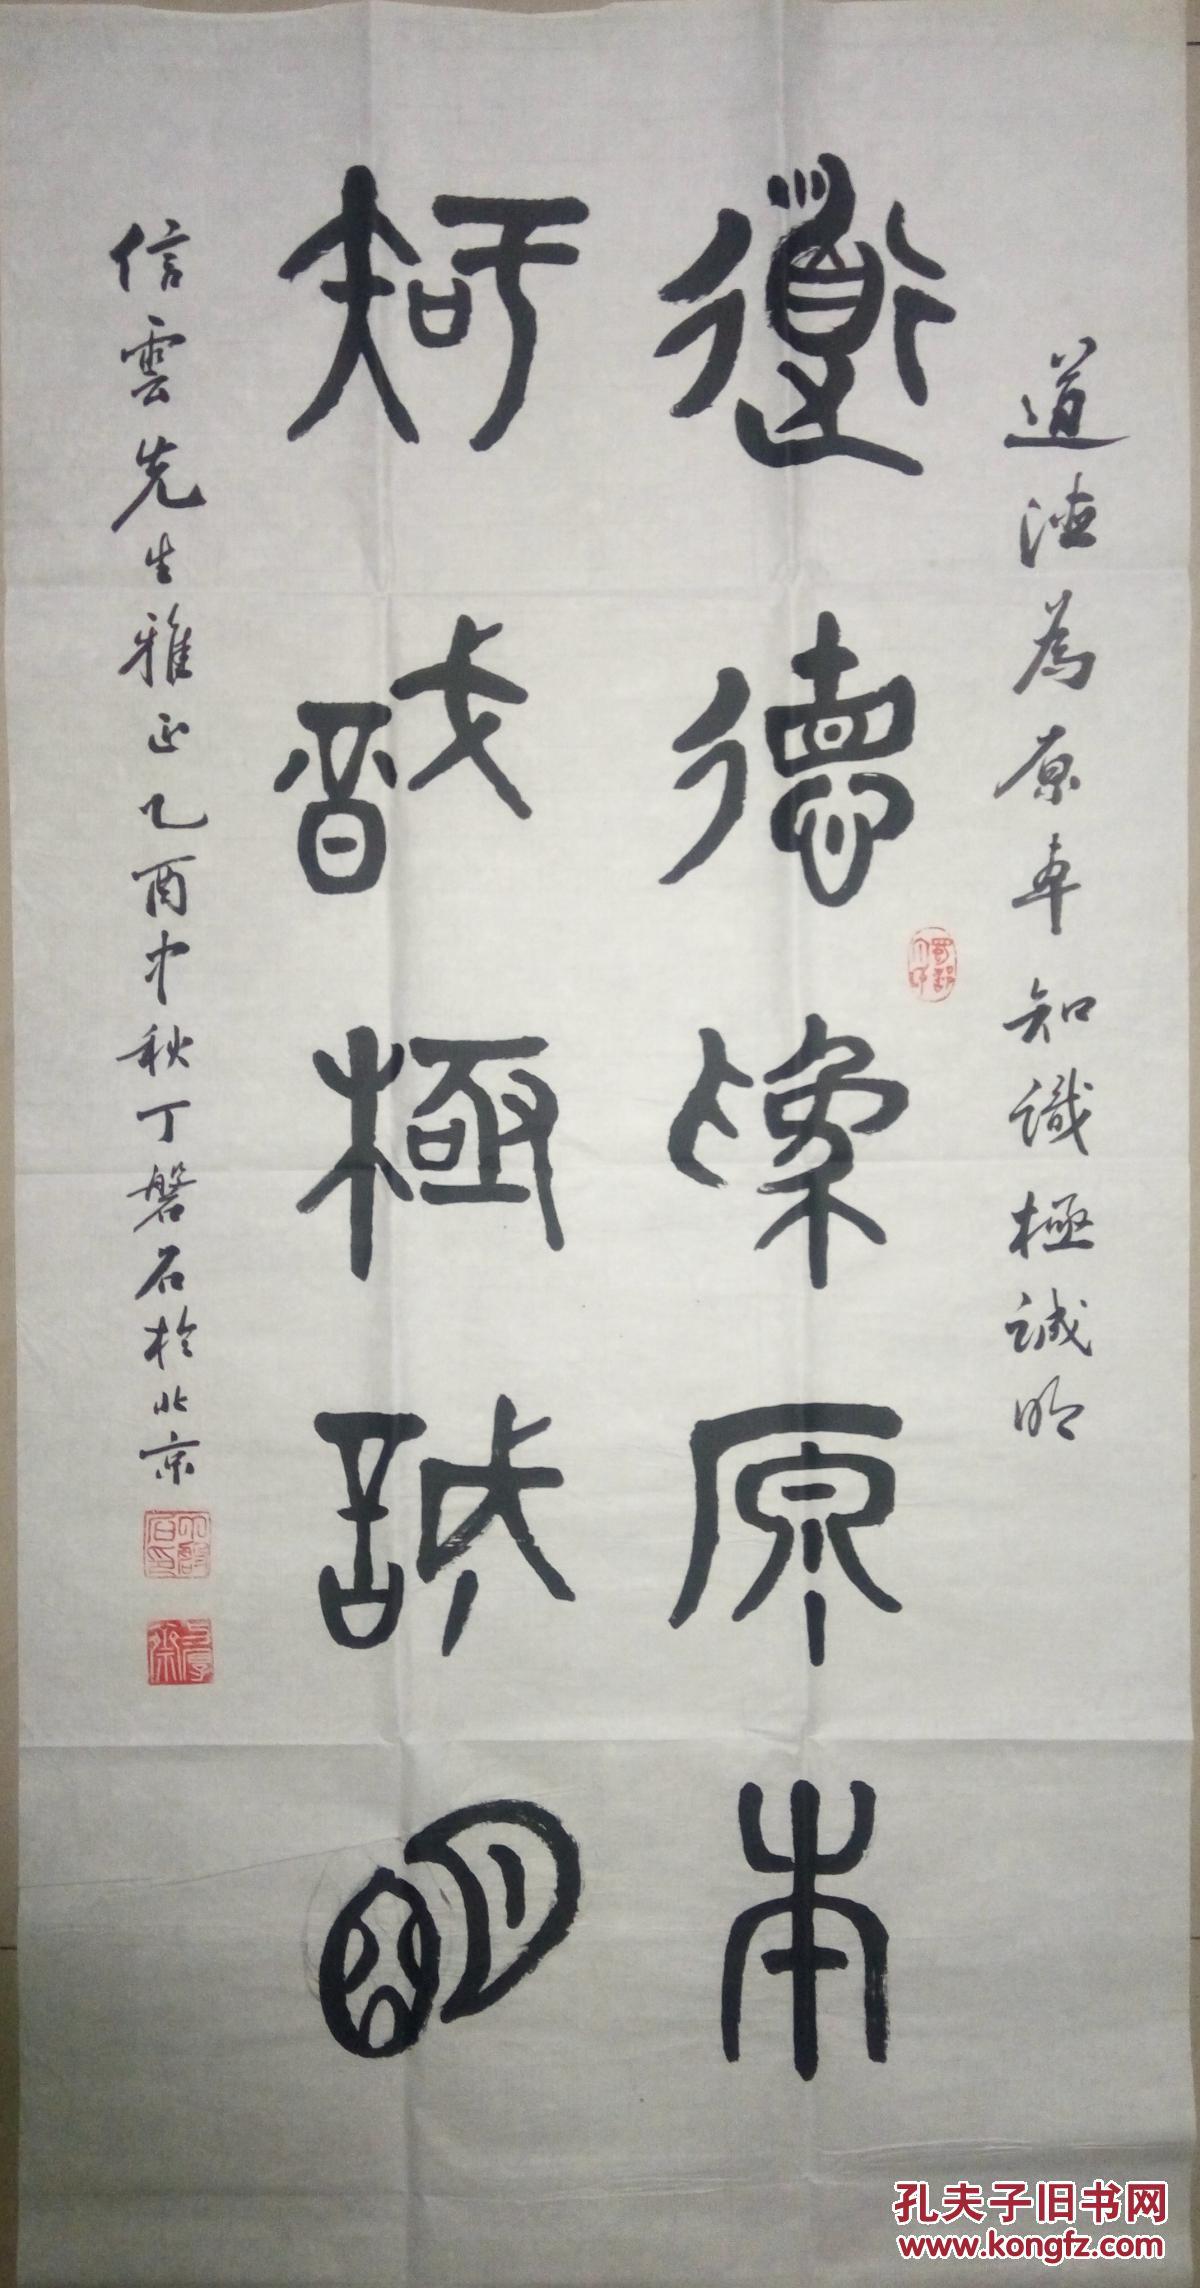 道德為原本知識極誠明
道德為原本
知識極誠明
信雲先生雅正乙酉中秋丁磐石於北京
孔夫子旧书网
www.kongfz.com